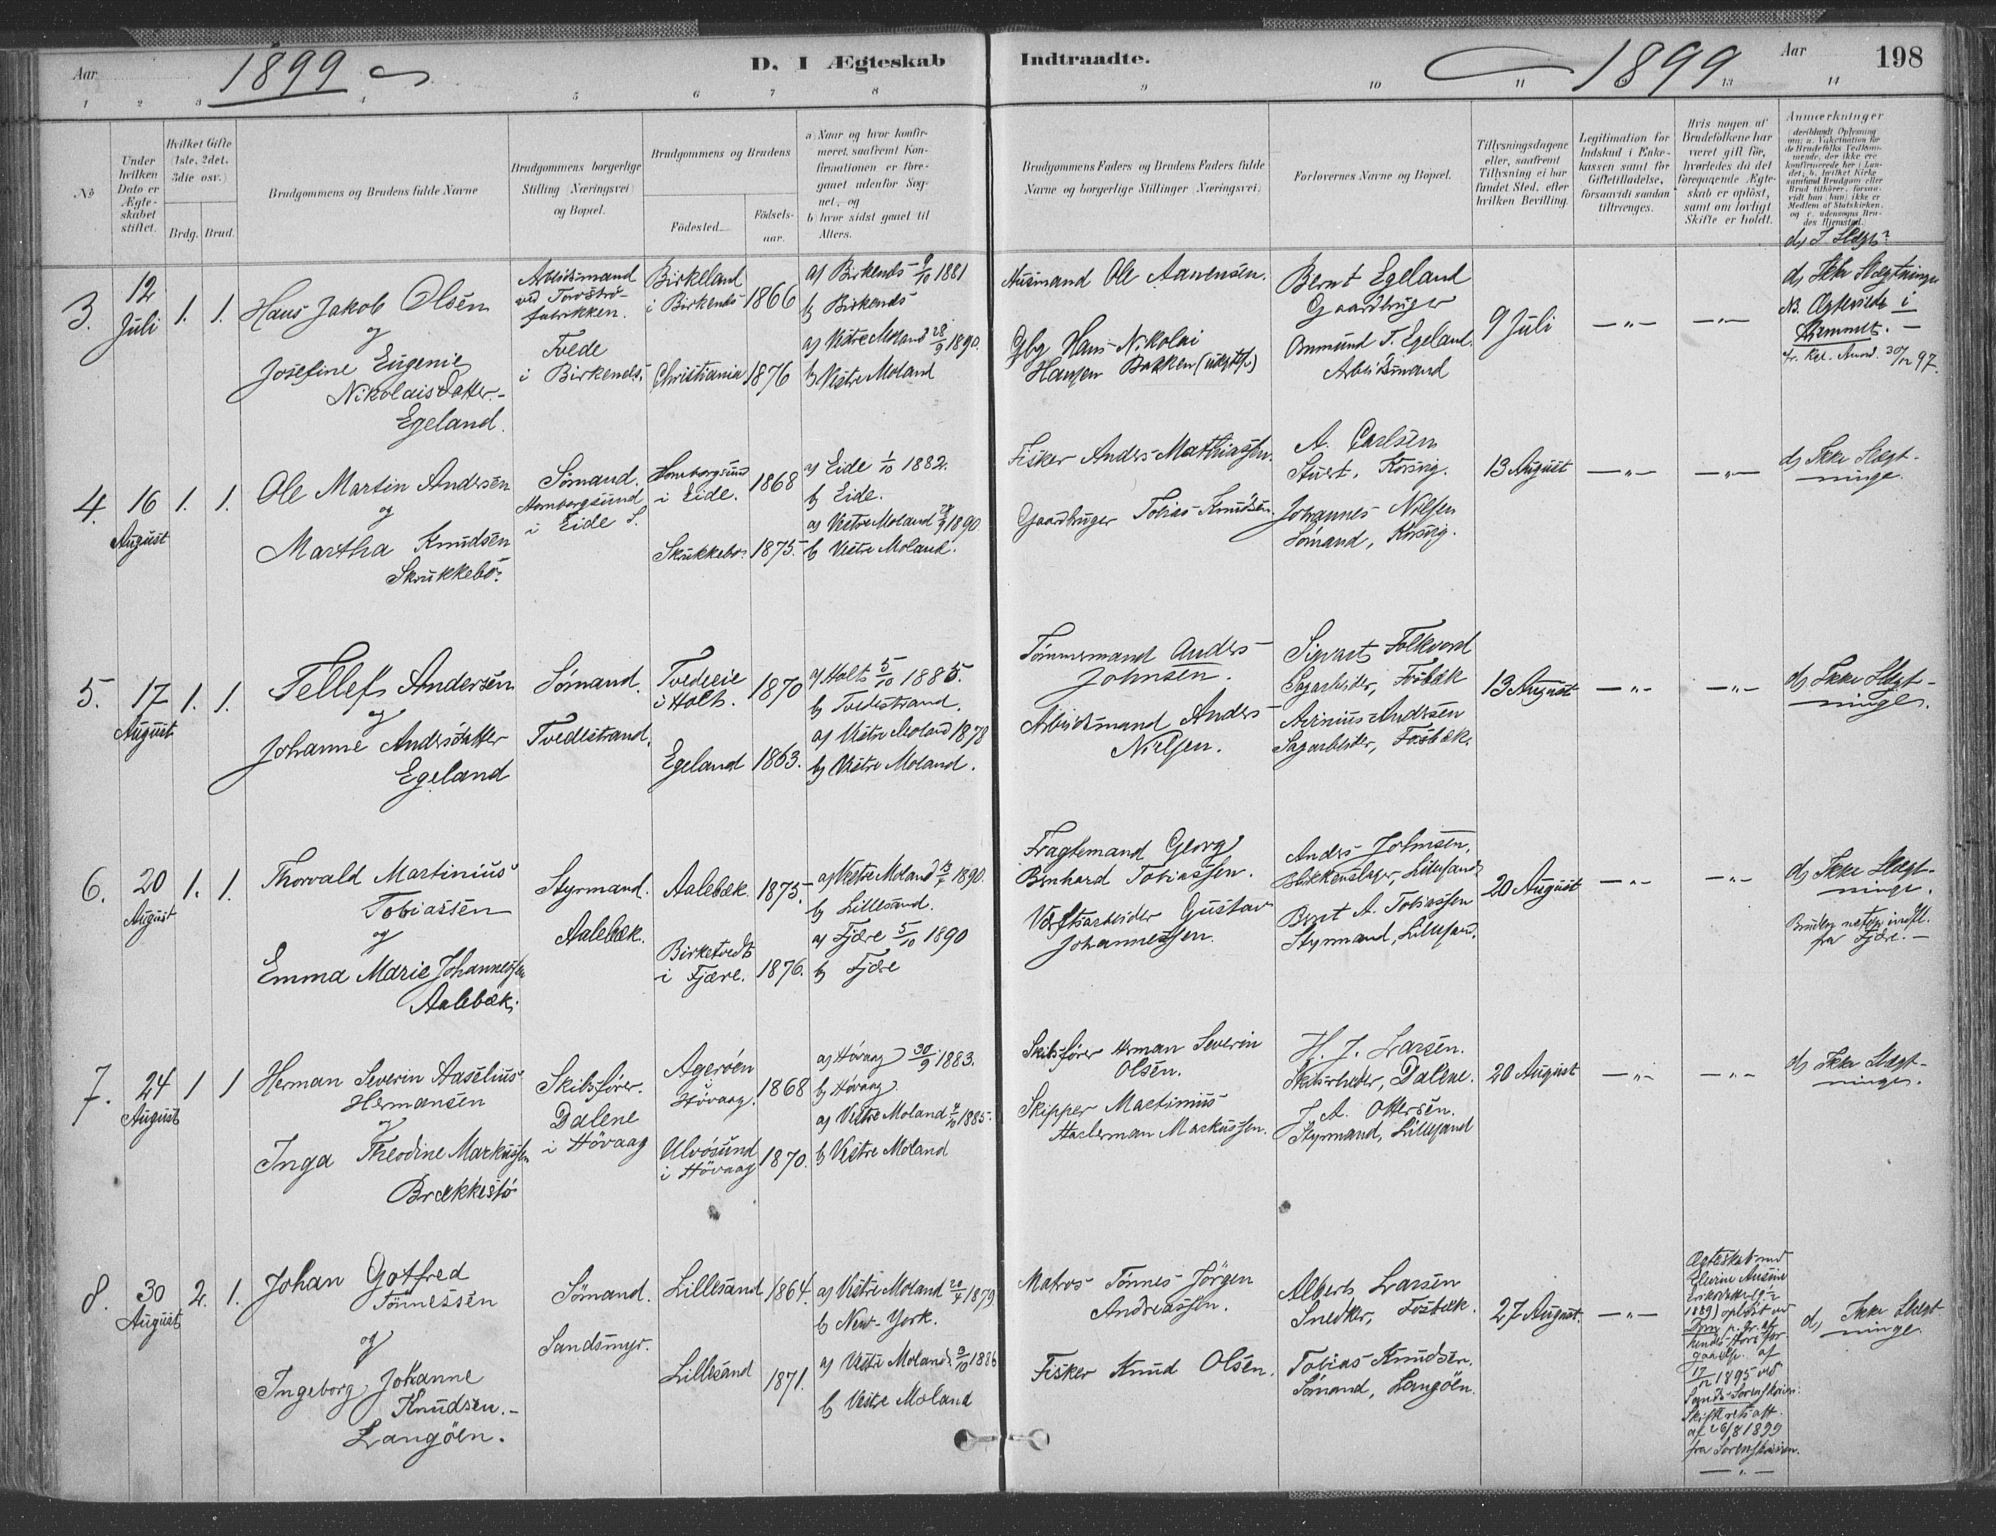 Aar 1899 D. I Ægteskab Indtraadte. 1899 Aar 198
1 2 3 4 5 6 7 8 9 10 11 12 13 14
No
Under hvilken Dato er Ægteskabet stiftet.
Hvilket Gifte (1ste, 2det, 3die osv.)
Brdg. Brud.
Brudgommens og Brudens fulde Navne
Brudgommens borgerlige Stilling (Næringsvei) og Bopæl.
Brudgommens og Brudens
Födested. Födselsaar.
a) Naar og hvor konfirmeret, saafremt Konfirmationen er foregaaet udenfor Sognet, og
b) hvor sidst gaaet til Alters.
Brudgommens Faders og Brudens Faders fulde Navne og borgerlige Stillinger (Næringsvei)
Forlovernes Navne og Bopæl.
Tillysningsdagene eller, saafremt Tillysning ei har fundet Sted, efter hvilken Bevilling.
Legitimation for Indskud i Enkekassen samt for Giftetilladelse, forsaavidt saadan tiltrænges.
Hvis nogen af Brudefolkene har været gift før, hvorledes da det foregaaende Ægteskab er opløst, samt om lovligt Skifte er holdt.
Anmærkninger
d) I Slægt?
3.
12 Juli
1. 1.
Hans Jakob Olsen
og
Josefine Eugenie
Nikolaisdatter
Egeland.
Arbeidsmand
ved
fabrikken.
Tvede
i Birkenes.
Birkeland
i Birkenes 1866
Christiania 1876
a) Birkenes 9/10 1881
b) Birkenes
a) Vestre Moland 28/9 1890.
b) Vestre Moland
Husmand Ole Aanensen.
Gbg Hans Nikolai
Hansen Bakken
Bernt Egeland
Gaardbruger
Omund T. Egeland.
Arbeidsmand
9 Juli
— „ —
— „ —
d) Ikke Slægtninge
NB. Ægteviede i
Hjemmet. —
4.
16 August
1. 1.
Ole Martin Andersen
og
Martha Knudsen
Skrukkebö.
Sömand.
Homborgsund
i Eide S.
Homborgsund
i Eide. 1868
Skrukkebö. 1875
a) Eide 1/10 1882.
b) Eide.
a) Vestre Moland 28/9 1890.
b) Vestre Moland.
Fisker Anders Mathiassen.
Gaardbruger Tobias Knudsen.
A. Carlsen
Stuert, Korsvig.
Johannes Nilsen
Sömand, Korsvig.
13 August
— „ —
— „ —
d) Ikke Slægt-
ninge.
5.
17 August
1. 1.
Tellefs Andersen
og
Johanne Andersdatter
Egeland
Sömand.
Tvedestrand.
Tvedeeie
i Holt. 1870
Egeland 1863.
a) Holt 5/10 1885.
b) Tvedestrand.
a) Vestre Moland 1878
b) Vestre Moland.
Tömmermand Anders
Johnsen.
Arbeidsmand Anders
Nielsen.
Sigvart Folkvord
Sagarbeider, Fosbæk
Arnius Andersen
Sagarbeider, Fosbæk.
13 August
— „ —
— „ —
d) Ikke Slægt-
ninge.
6.
20 August
1. 1.
Thorvald Martinius
Tobiassen
og
Emma Marie Johannessen
Aalebæk.
Styrmand.
Aalebæk.
Aalebæk. 1875
Birketvedt
i Fjære. 1876.
a) Vestre Moland 1890.
b) Lillesand.
a) Fjære 5/10 1890
b) Fjære
Fragtemand Georg
Bernhard Tobiassen.
Værftsarbeider Gustav
Johannessen.
Anders Johnsen,
Blikkenslager, Lillesand
Bernt A. Tobiassen
Styrmand, Lillesand.
20 August
— „ —
— „ —
d) Ikke Slægt-
ninge.
Bruden netop indfl.
fra Fjære. —
7.
24 August
1 1
Herman Severin Aaselius
Hermansen
og
Inga Theodine Markussen
Brækkestö
Skibsförer.
Dalene
i Hövaag
Ageröen
i
Hövaag. 1868
Ulvösund
i Hövaag 1870.
a) Hövaag 30/9 1883.
b) Hövaag.
a) Vestre Moland 1885.
b) Vestre Moland
Skibsförer Herman Severin
Olsen.
Skipper Martinius
Markussen.
H. J. Larsen.
Skibsrheder, Dalene.
J. A. Ottersen.
Styrmand, Lillesand
20 August
— „ —
— „ —
d) Ikke Slægt-
ninge.
8.
30 August
2. 1.
Johan Gotfred
Tönnessen
og
Ingeborg Johanne
Knudsen.
Langöen.
Sömand.
Sandsmyr.
Lillesand 1864.
Lillesand 1871.
a) Vestre Moland 20/4 1879
b) New-York.
a) Vestre Moland 3/10 1886
b) Vestre Moland
Matros Tönnes Jörgen
Andreassen.
Fisker Knud Olsen.
Alberts Larsen
Snedker, Fosbæk.
Tobias Knudsen.
Sömand, Langöen.
27 August.
— „ —
Ægteskab med
1889) opløst ved
Dom
af
1895 ved
Skifteretsatt.
af 26/8 1899
fra Sorenskriveren.
— „ —
d) Ikke Slægt-
ninge.